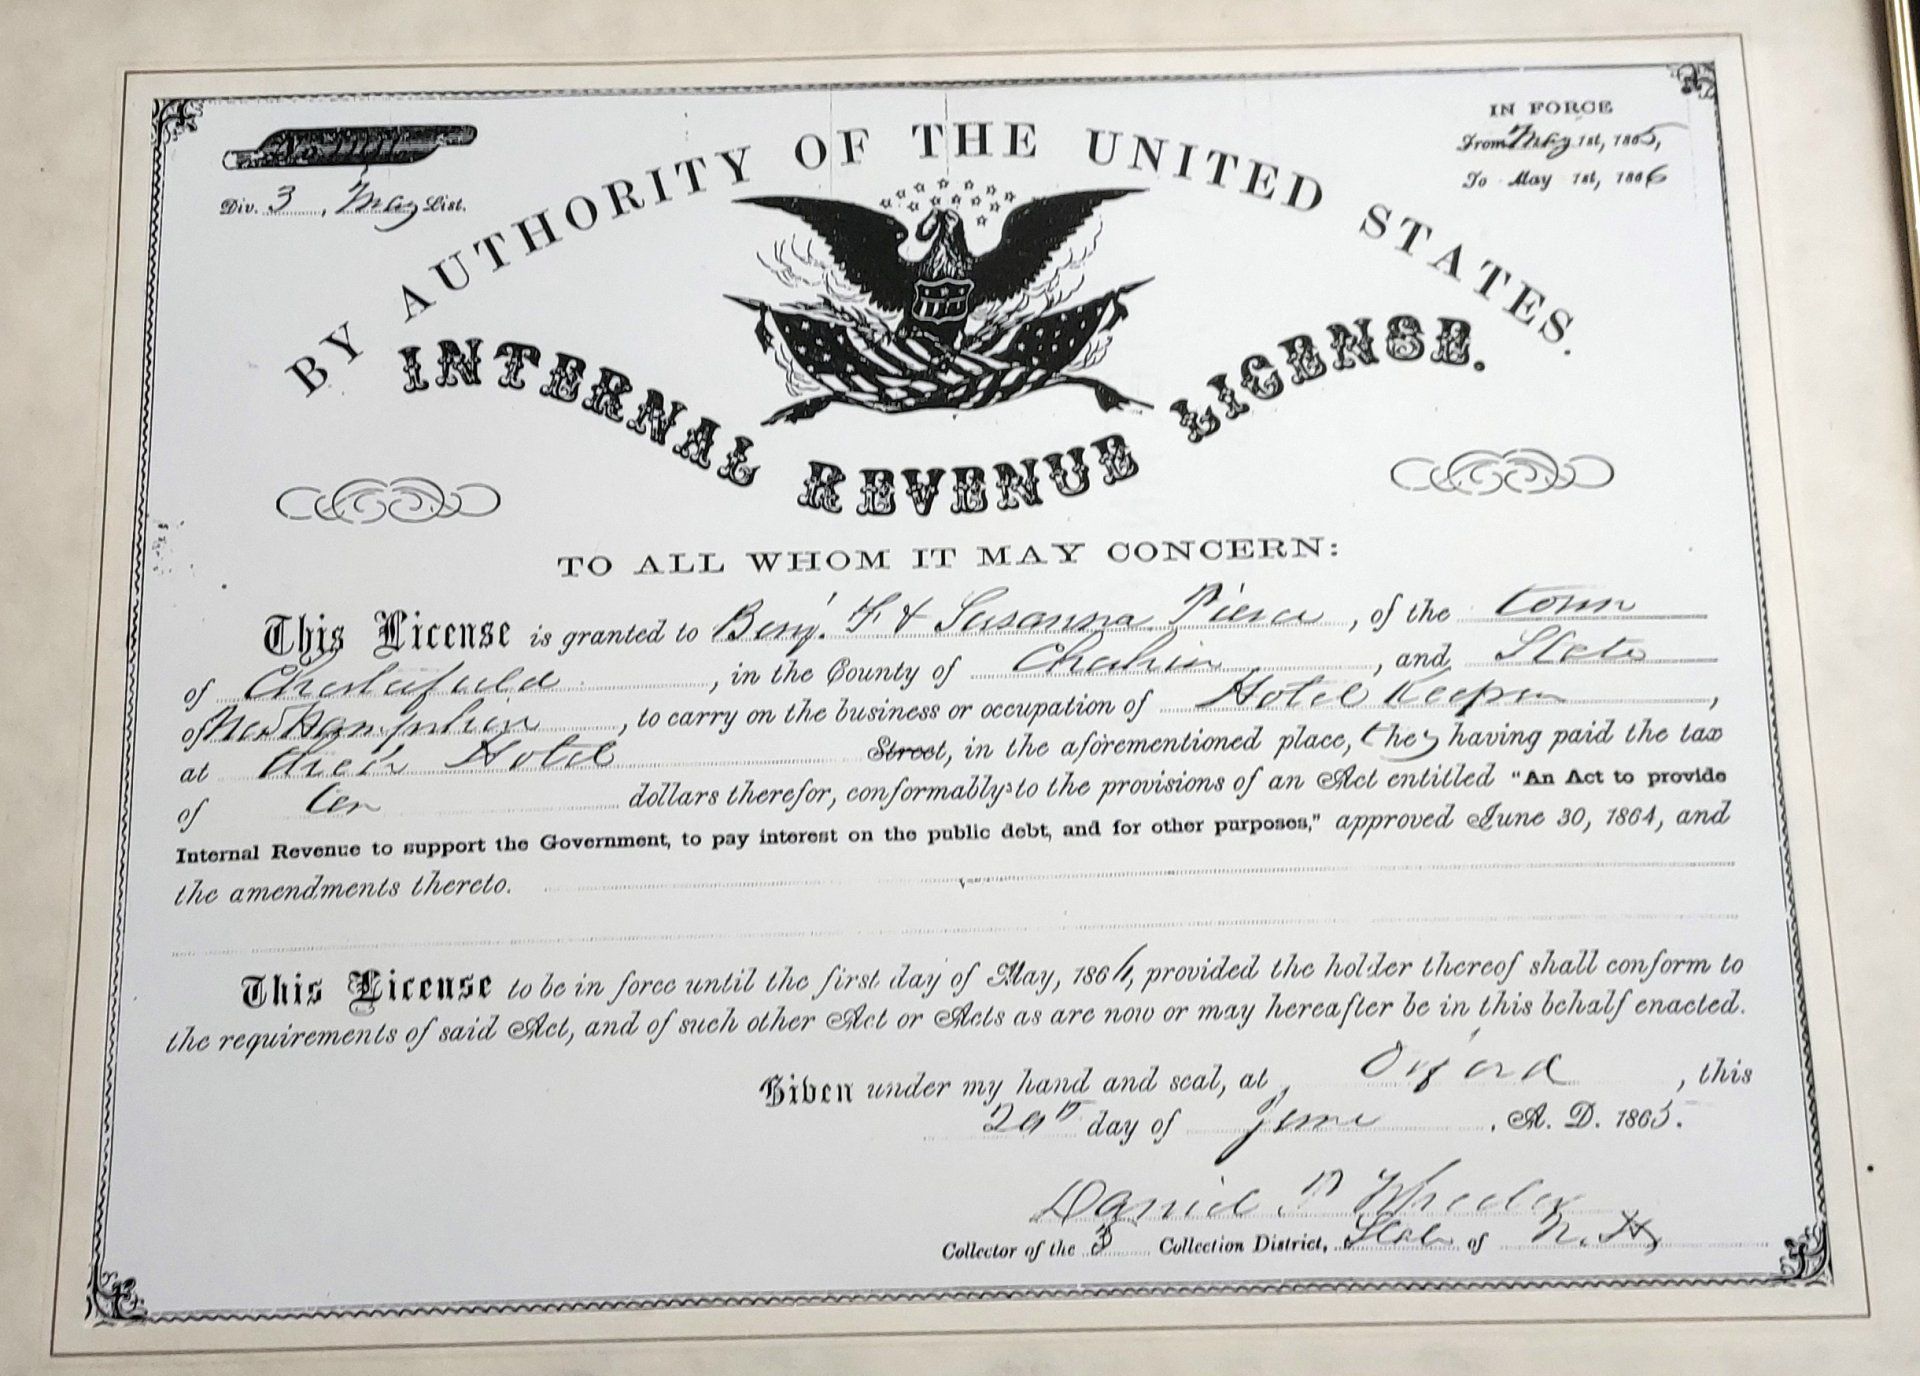 Div. 3, May List.
IN FORCE
From May 1st, 1865,
To May 1st, 1866
BY AUTHORITY OF THE UNITED STATES.
INTERNAL REVENUE LICENSE.
TO ALL WHOM IT MAY CONCERN:
This License is granted to Benj. F & Susanna Pierce, of the town
of Chesterfield, in the County of Cheshire, and State
of New Hampshire, to carry on the business or occupation of Hotel Keeper,
at their Hotel Street, in the aforementioned place, they having paid the tax
of ten dollars therefor, conformably to the provisions of an Act entitled "An Act to provide
Internal Revenue to support the Government, to pay interest on the public debt, and for other purposes," approved June 30, 1864, and
the amendments thereto.
This License to be in force until the first day of May, 1866, provided the holder thereof shall conform to
the requirements of said Act, and of such other Act or Acts as are now or may hereafter be in this behalf enacted.
Given under my hand and seal, at Orford, this
29th day of June. A. D. 1865.
Daniel Wheeler
Collector of the 3 Collection District, State of N. H.